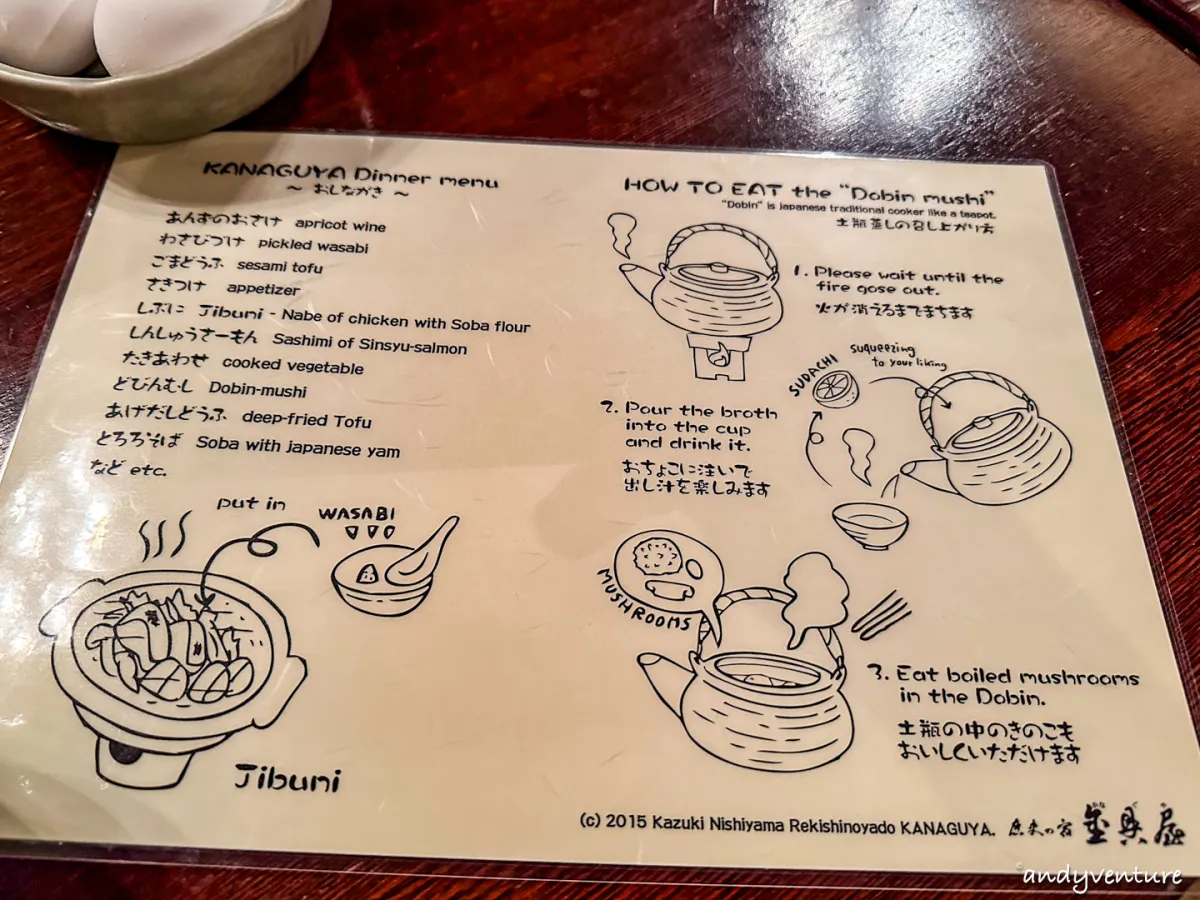 KANAGUYA Dinner menu
～ おしながき ～
あんずのおさけ apricot wine
わさびづけ pickled wasabi
ごまどうふ sesami tofu
さきつけ appetizer
じぶに Jibuni - Nabe of chicken with Soba flour
しんしゅうさーもん Sashimi of Sinsyu-salmon
たきあわせ cooked vegetable
どびんむし Dobin-mushi
あげだしどうふ deep-fried Tofu
とろろそば Soba with japanese yam
など etc.
put in
WASABI
Jibuni
HOW TO EAT the "Dobin mushi"
"Dobin" is japanese traditional cooker like a teapot.
土瓶蒸しの召し上がり方
1. Please wait until the
fire gose out.
火が消えるまでまちます
SUDACHI
suqueezing
to your liking
2. Pour the broth
into the cup
and drink it.
おちょこに注いで
出し汁を楽しみます
MUSHROOMS
3. Eat boiled mushrooms
in the Dobin.
土瓶の中のきのこも
おいしくいただけます
(c) 2015 Kazuki Nishiyama Rekishinoyado KANAGUYA. 歴史の宿 金具屋
andyventure